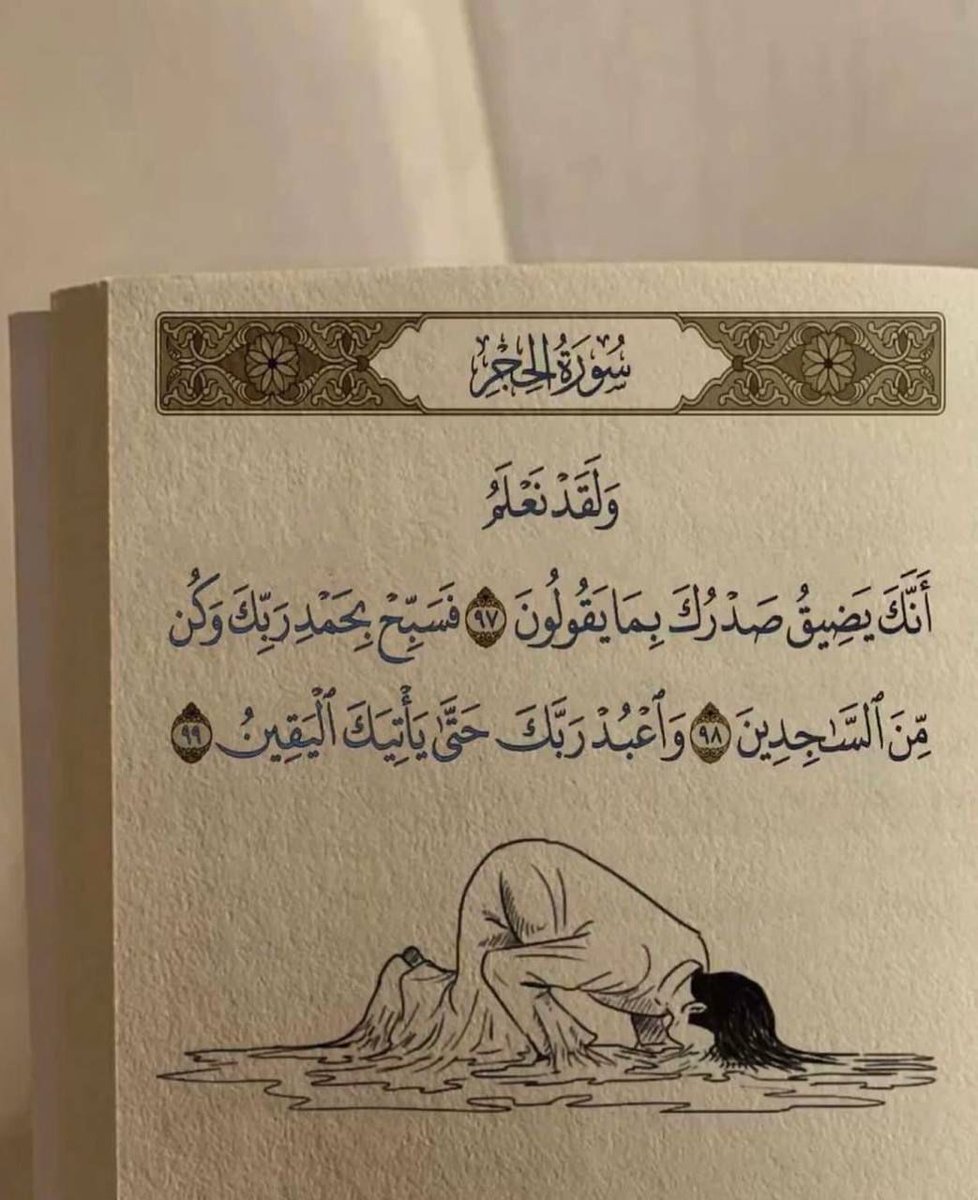 سُورَةُ الحِجْرِ
وَلَقَدْ نَعْلَمُ
أَنَّكَ يَضِيقُ صَدْرُكَ بِمَا يَقُولُونَ ٩٧ فَسَبِّحْ بِحَمْدِ رَبِّكَ وَكُن
مِّنَ ٱلسَّٰجِدِينَ ٩٨ وَٱعْبُدْ رَبَّكَ حَتَّىٰ يَأْتِيَكَ ٱلْيَقِينُ ٩٩